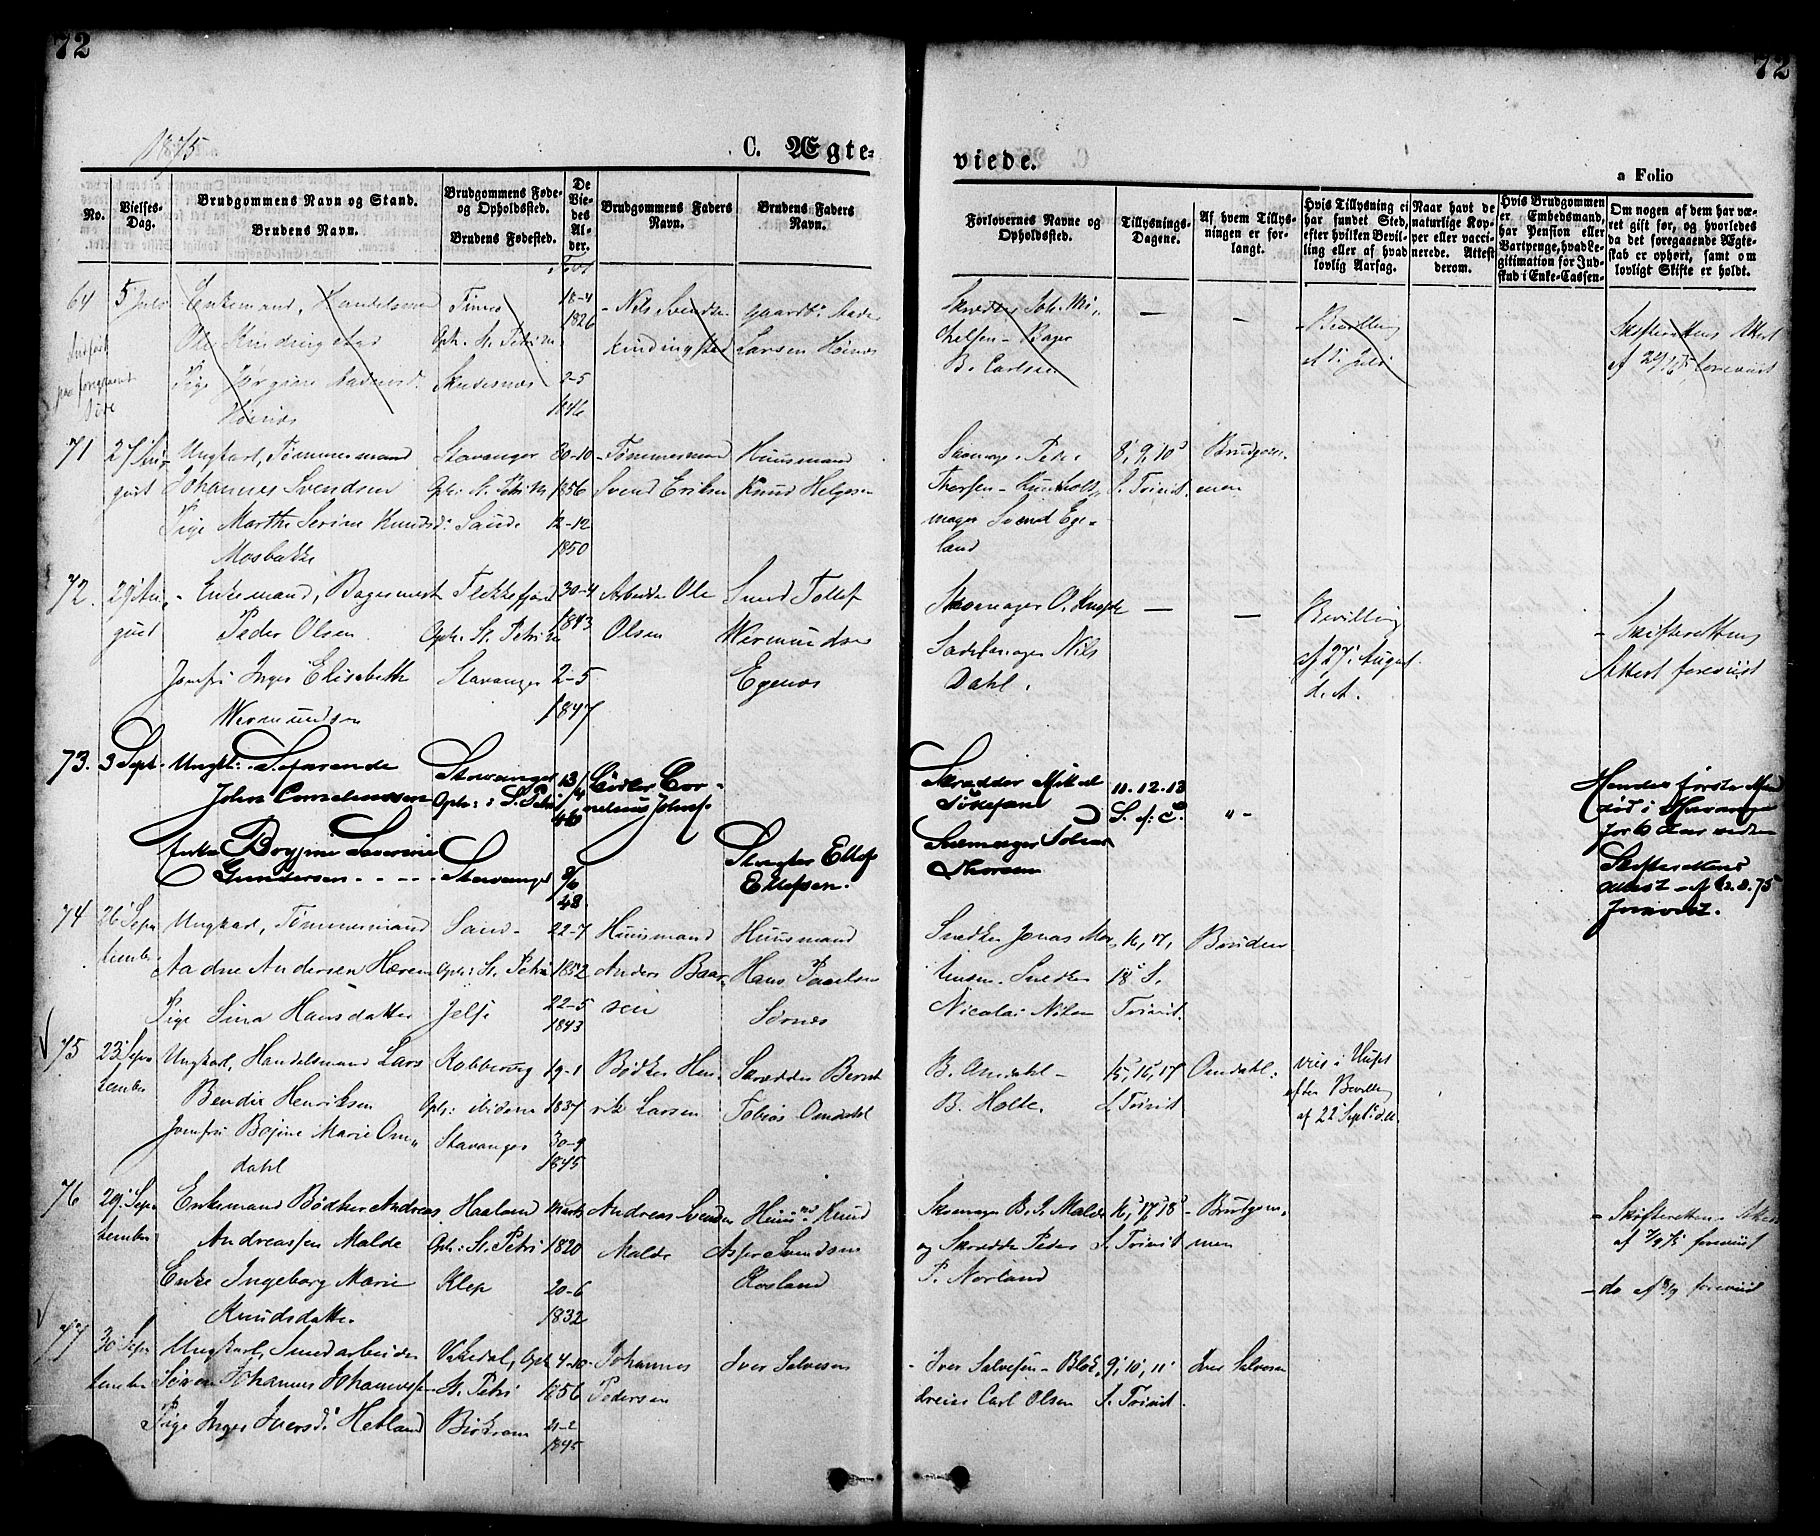 72
72
1875
C. Ægte-
viede.
a Folio
No.
Vielses-
Dag.
Brudgommens Navn og Stand.
Brudens Navn.
Brudgommens Føde-
og Opholdsted.
Brudens Fødested.
De
Vie-
des
Al-
der.
Brudgommens Faders
Navn.
Brudens Faders
Navn.
Forlovernes Navne og
Opholdsted.
Tillysnings-
Dagene.
Af hvem Tillys-
ningen er for-
langt.
Hvis Tillysning ei
har fundet Sted,
efter hvilken Bevil-
ling eller af hvad
lovlig Aarsag.
Naar havt de
naturlige Kop-
per eller vacci-
nerede. Attest
derom.
Hvis Brudgommen
er Embedsmand,
har Pension eller
Vartpenge, hvad Le-
gitimation for Ind-
skud i Enke-Cassen.
Om nogen af dem har væ-
ret gift før, og hvorledes
da det foregaaende Ægte-
skab er ophørt, samt om
lovligt Skifte er holdt.
64 5 Juli Enkemand, Handelsm
Ole Kindingstad
Pige Jørgine
Høines
Oph. St. Petri
Skudesnæs
18-4
1826
2-5
1846
Nils Svendsen
Kindingstad
Larsen Høines
B. Carlsen
— —
Bevilling
af 5 Juli
Skifterettens Attest
foreviist
71 27 Au-
gust
Ungkarl, Tømmermand
Johannes Svendsen
Pige Marthe Serine Knudsd:
Mosbakke
Stavanger
Oph: St. Petri
Saude
30-10
1856
12-12
1850
Tømmermand
Svend Eriksen
Huusmand
Knud Helgesen
Skomager Peder
Thorsen -
mager Svend Ege-
land
8, 9, 10
S. Trinit.
Brudgom-
men
72. 29 Au-
gust
Enkemand, Bagermest
Peder Olsen.
Jomfru Inger Elisabeth
Wermundsen
Flekkefjord
Oph: St. Petri
Stavanger
30-4
1843
2-5
1847
Arbeider Ole
Olsen
Smed Tollef
Wermundsen
Egenes
Skomager O.
Sadelmager Nils
Dahl.
— —
Bevilling
af 27 August
d. A.
Skifterettens
Attest foreviist
73. 3 Sept. Ungk:
John Corneliussen
Enke Børgine Severine
Gundersen - - - - -
Stavanger
Oph: S. Petri
Stavanger
13/4
46
8/6
48.
Cor-
nelius Johns.
Ellef
Ellefsen.
Skrædder Mikal
Tobias
Thorsen
11. 12. 13
S. e: T.
" -
Hendes første Mand
død i Stavanger
for 6 Aar siden
Skifterettens
attest af 12.8.75
forevist.
74 26 Sep-
tember
Ungkarl, Tømmermand
Aadne Andersen Hæreim
Pige Sina Hansdatter
Sand -
Oph: St. Petri
Jelse
22-7
1852
22-5
1843
Huusmand
Anders Baar-
sen
Huusmand
Hans Paulsen
Sørnes
Snedker Jonas Mor-
tensen. Snedker
Nicolai Nilsen
16, 17,
18 S.
Trinit.
Bruden
75 23 Sep-
tember
Ungkarl, Handelsmand Lars
Bendix Henriksen
Jomfru Bojine Marie Om-
dahl
Kobbervig
Oph: ibidem
Stavanger
19-1
1837
30-9
1845
Bødker Hen-
rik Larsen
Skrædder Bernt
Tobias Omdahl
B. Omdahl -
B. Holte.
15, 16, 17
S. Trinit
Omdahl:
viet i Huset
efter Bevilling
af 22 Sept. d. A.
76 29 Sep-
tember
Enkemand Bødker Andreas
Andreassen Malde
Enke Ingeborg Marie
Knudsdatter
Haaland
Oph: St. Petri
Klep
Marts
1820
20-6
1832
Andreas Svendsen
Malde
Huusmd Knud
Svendsen
Rosland
Skomager B. J. Malde
og Skrædder Peder
P. Norland
16, 17, 18
S. Trinit
Brudgom-
men
Skifterettens Attest
foreviist
do af 8/9 foreviist
77 30 Sep-
tember
Ungkarl, Smedarbeider
Søren Johannes Johannessen
Pige Inger Iversd: Hetland
Oph:
St. Petri
Birkrem
4-10
1856
21-2
1845
Johannes
Pedersen
Iver Salvesen
Iver Salvesen - Blok-
dreier Carl Olsen
9, 10, 11
S. Trinit.
Iver Salvesen